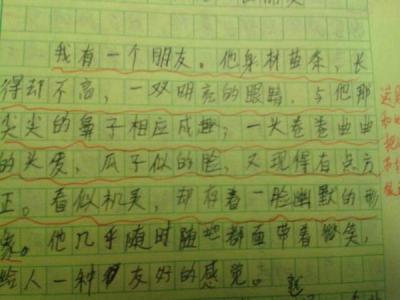 我有一个朋友。他身材苗条,长
得却不高,一双明亮的眼睛,与他那
尖尖的鼻子相应成趣;一头卷卷曲曲
的头发,瓜子似的脸,又现得有点方
正。看似机灵,却存着一脸幽默的形
象。他几乎随时随地都面带着微笑,
给人一种友好的感觉。